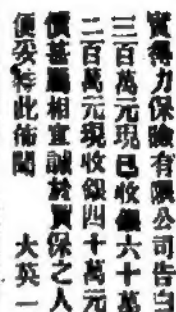 實得力保險有限公司告白
三百萬元現已收銀六十萬
二百萬元現收銀四十萬元
價甚屬相宜誠於買保之人
便妥特此佈聞　大英一